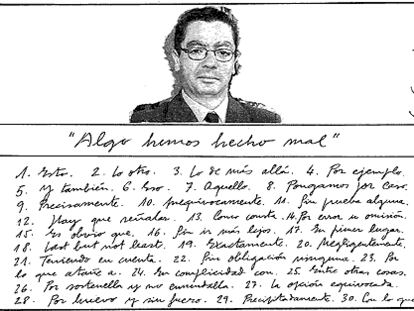 "Algo hemos hecho mal"
1. Esto. 2. Lo otro. 3. Lo de más allá. 4. Por ejemplo.
5. Y también. 6. Eso. 7. Aquello. 8. Pongamos por caso.
9. Precisamente. 10. Inequívocamente. 11. Sin prueba alguna.
12. Hay que señalar. 13. Como consta. 14. Por error u omisión.
15. Es obvio que. 16. Sin ir más lejos. 17. En primer lugar.
18. Last but not least. 19. Exactamente. 20. Negligentemente.
21. Teniendo en cuenta. 22. Sin obligación ninguna. 23. Por
lo que atañe a. 24. En complicidad con. 25. Entre otras cosas.
26. Por sostenella y no enmendalla. 27. La opción equivocada.
28. Por huevo y sin fuero. 29. Precipitadamente. 30. Con lo que